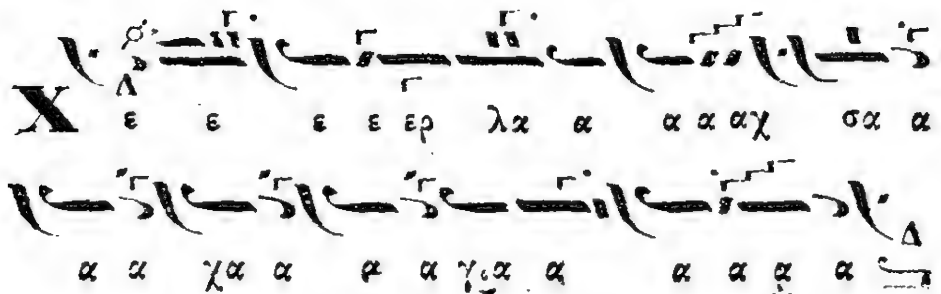 Χ ε ε ε ε ερ λα α α α αχ σα α
α α χα α α α για α α α α α